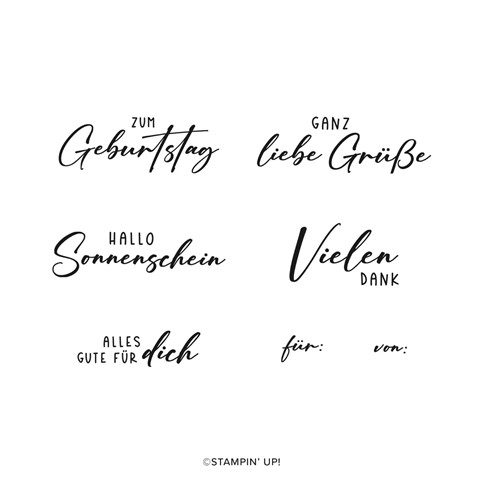 ZUM
Geburtstag
GANZ
liebe Grüße
HALLO
Sonnenschein
Vielen
DANK
ALLES
GUTE FÜR dich
für:
von:
©STAMPIN' UP!